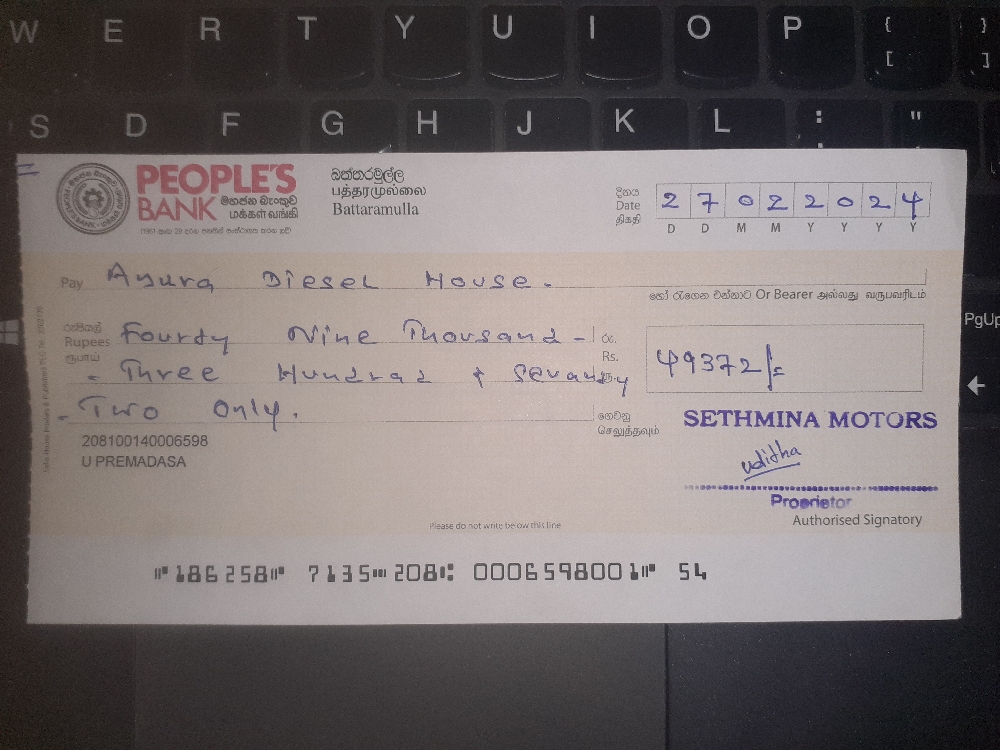 W E R T Y U I O P { [ } ]
S D F G H J K L : "
PgUp
PEOPLE'S
BANK
මහජන බැංකුව
மக்கள் வங்கி
බත්තරමුල්ල
பத்தரமுல்லை
Battaramulla
දිනය
Date
திகதி
2 7 0 2 2 0 2 4
D D M M Y Y Y Y
Pay Anura Diesel House.
හෝ රැගෙන එන්නාට Or Bearer அல்லது வருபவரிடம்
රුපියල්
Rupees
ரூபாய்
Fourdy Nine Thousand -
- Three Hundrad & Sevandy
- Two Only.
රු.
Rs.
ரூ.
49372/=
ගෙවනු
செலுத்தவும்
208100140006598
U PREMADASA
SETHMINA MOTORS
uditha
Proprietor
Authorised Signatory
Please do not write below this line
⑈186258⑈ 7135⑉208⑆ 0006598001⑈ 54